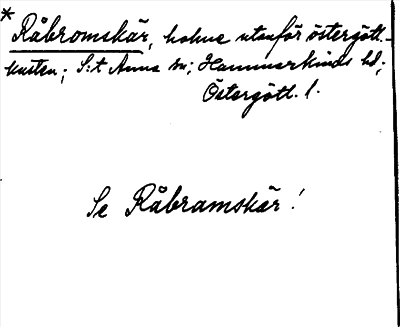 * Råbromskär, holme utanför östergötl.-
kusten; S:t Anna sn; Hammarkinds hd;
Östergötl. l.
Se Råbramskär!